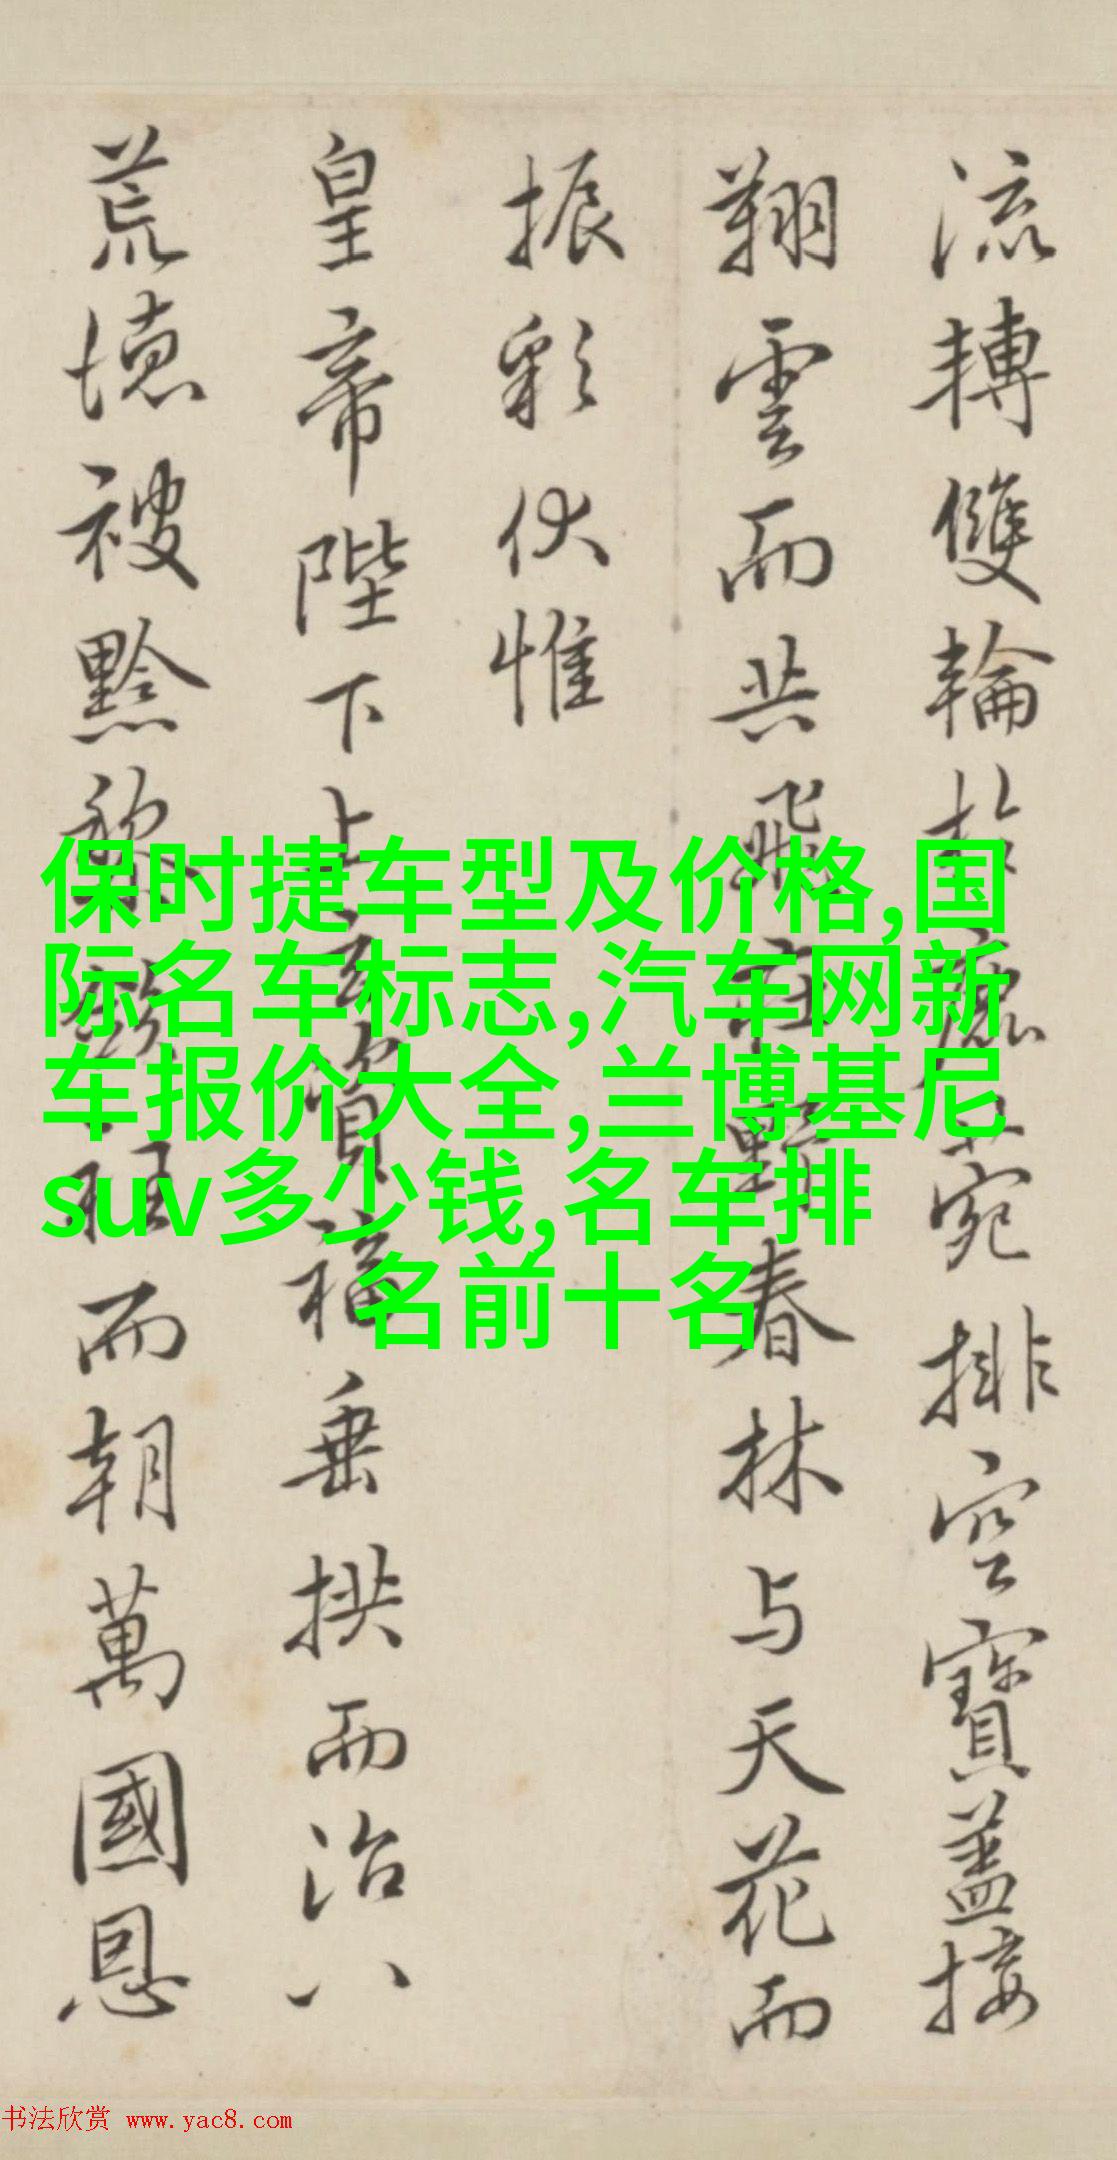 流轉雙輪於鹿菀排空寶蓋接
翔雲而共飛莊野春林与天花而
振彩伏惟
皇帝陛下上玄資福垂拱而治八
荒德被黔黎斂衽而朝萬國恩
保时捷车型及价格,国
际名车标志,汽车网新
车报价大全,兰博基尼
suv多少钱,名车排
名前十名
书法欣赏 www.yac8.com